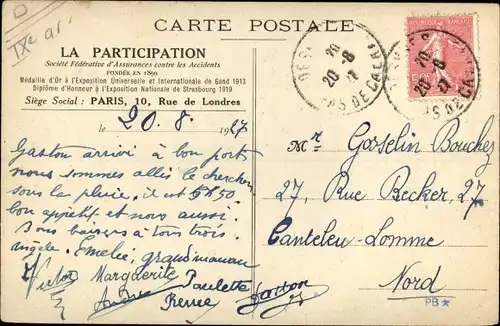 CARTE POSTALE
IXe ar.
LA PARTICIPATION
Société Fédérative d'Assurances contre les Accidents
FONDÉE EN 1899
Médaille d'Or à l'Exposition Universelle et Internationale de Gand 1913
Diplôme d'Honneur à l'Exposition Nationale de Strasbourg 1919
Siège Social : PARIS, 10, Rue de Londres
le 20.8. 1927
Gaston arrivé à bon port
nous sommes allés le chercher
sous la pluie, il est 5h50
bon appétit et nous aussi.
Bons baisers à tous trois.
Angèle. Emelie, grand'maman
Victor Marguerite Paulette
Andrée Renée Gaston
20-8
PAS DE CALAIS
20-8
27
Mr. Gosselin Bouchez
27, Rue Becker, 27
Canteleu-Lomme
Nord
PB*